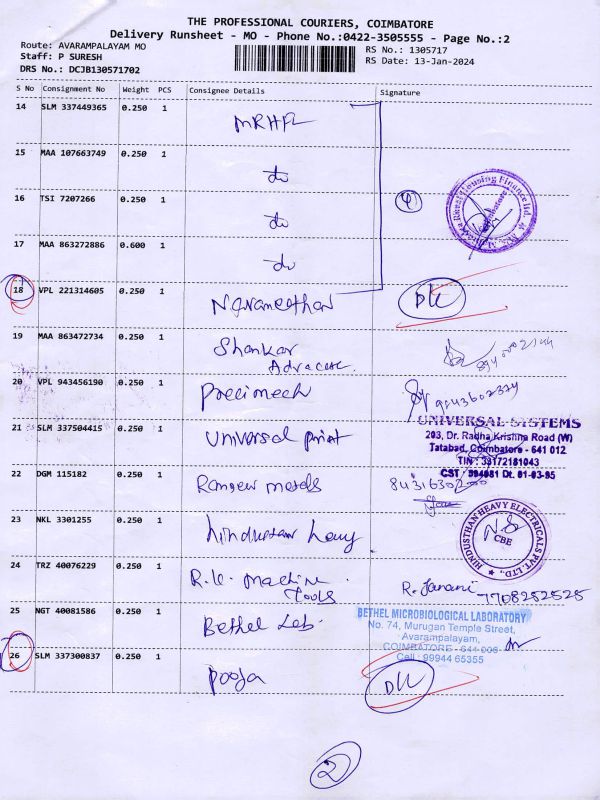 THE PROFESSIONAL COURIERS, COIMBATORE
Delivery Runsheet - MO - Phone No.:0422-3505555 - Page No.:2
Route: AVARAMPALAYAM MO
RS No.: 1305717
Staff: P SURESH
RS Date: 13-Jan-2024
DRS No.: DCJB130571702
S No Consignment No Weight PCS Consignee Details Signature
14 SLM 337449365 0.250 1 MRHFL
15 MAA 107663749 0.250 1 do
16 TSI 7207266 0.250 1 do
4
17 MAA 863272886 0.600 1 do
18 VPL 221314605 0.250 1 Navaneethan DL
19 MAA 863472734 0.250 1 Shankar
Advocate
20 VPL 943456190 0.250 1 Precimech
21 SLM 337504415 0.250 1 Universal print
UNIVERSAL SYSTEMS
203, Dr. Radha Krishna Road (W)
Tatabad, Coimbatore - 641 012
TIN: 33172181043
CST: 394081 Dt. 01-03-95
22 DGM 115182 0.250 1 metals
23 NKL 3301255 0.250 1 hindustan heavy
HINDUSTHAN HEAVY ELECTRICALS PVT. LTD.
CBE
24 TRZ 40076229 0.250 1 R.K. machine
Tools
R. Janani
7708252525
25 NGT 40081586 0.250 1 Bethel Lab.
BETHEL MICROBIOLOGICAL LABORATORY
No. 74, Murugan Temple Street,
Avarampalayam,
COIMBATORE - 641 006
Cell: 99944 65355
26 SLM 337300837 0.250 1 Pooja DL
2